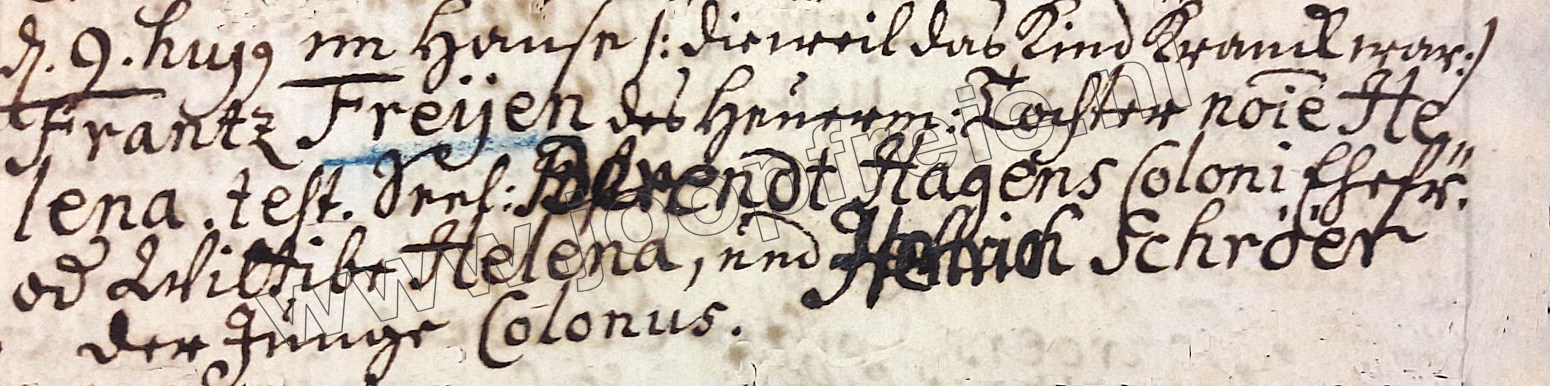 d. 9. hujq im Hause /: dieweil das Kind Kranck war :/
Frantz Freijen des Heuerm: Tochter noie He„
lena. test. Seel: Berendt Hagens Coloni Ehefr.
od Wittibe Helena, und Henrich Schröer
der Junge Colonus.
www.joopfreio.nl